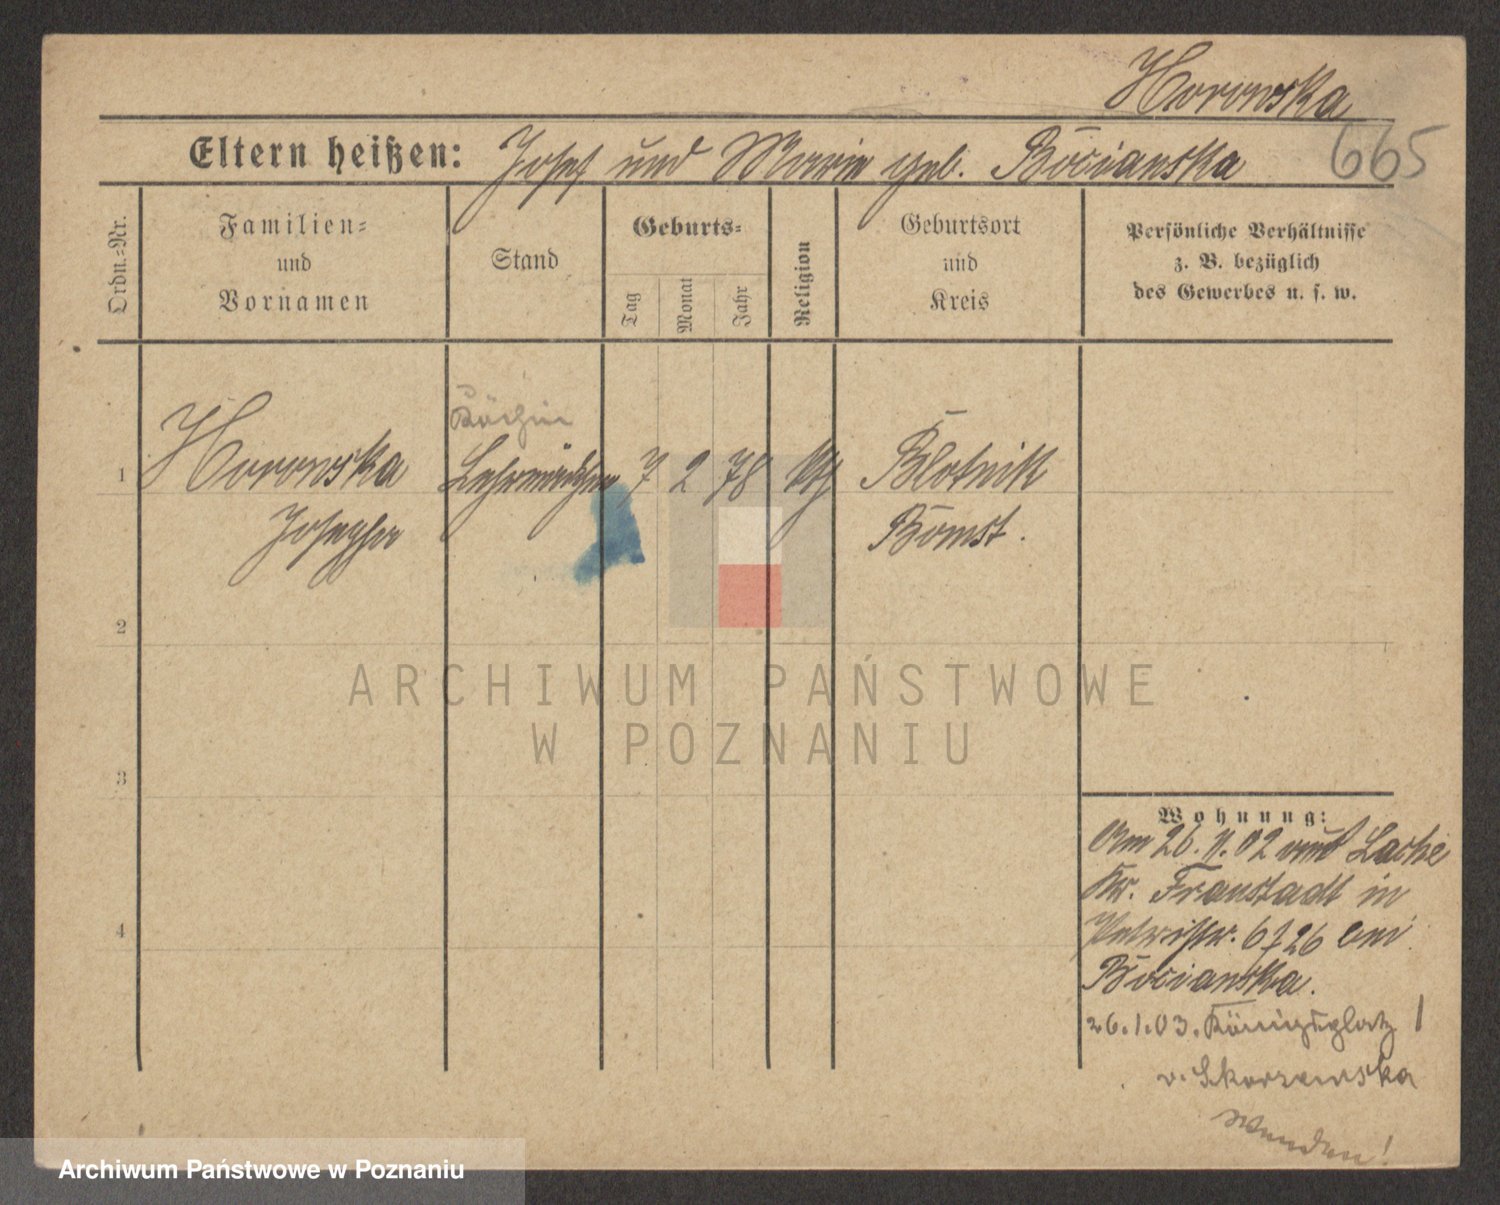 Horowska
665
Eltern heißen: Josef und Marie geb. Bocianska
Ordn.-Nr.
Familien-
und
Vornamen
Stand
Geburts-
Tag
Monat
Jahr
Religion
Geburtsort
und
Kreis
Persönliche Verhältnisse
z. B. bezüglich
des Gewerbes u. s. w.
Köchin
1 Horowska Lehrmädchen 7 2 78 kth Blotnik
Josepha Bomst.
2
3
4
Wohnung:
Am 26. 02 Lache
Kr. Fraustadt in
Petristr. 6 bei
Bocianska.
26.1.03. Königsplatz 1
v. Skorzewska
wenden!
ARCHIWUM PAŃSTWOWE
W POZNANIU
Archiwum Państwowe w Poznaniu